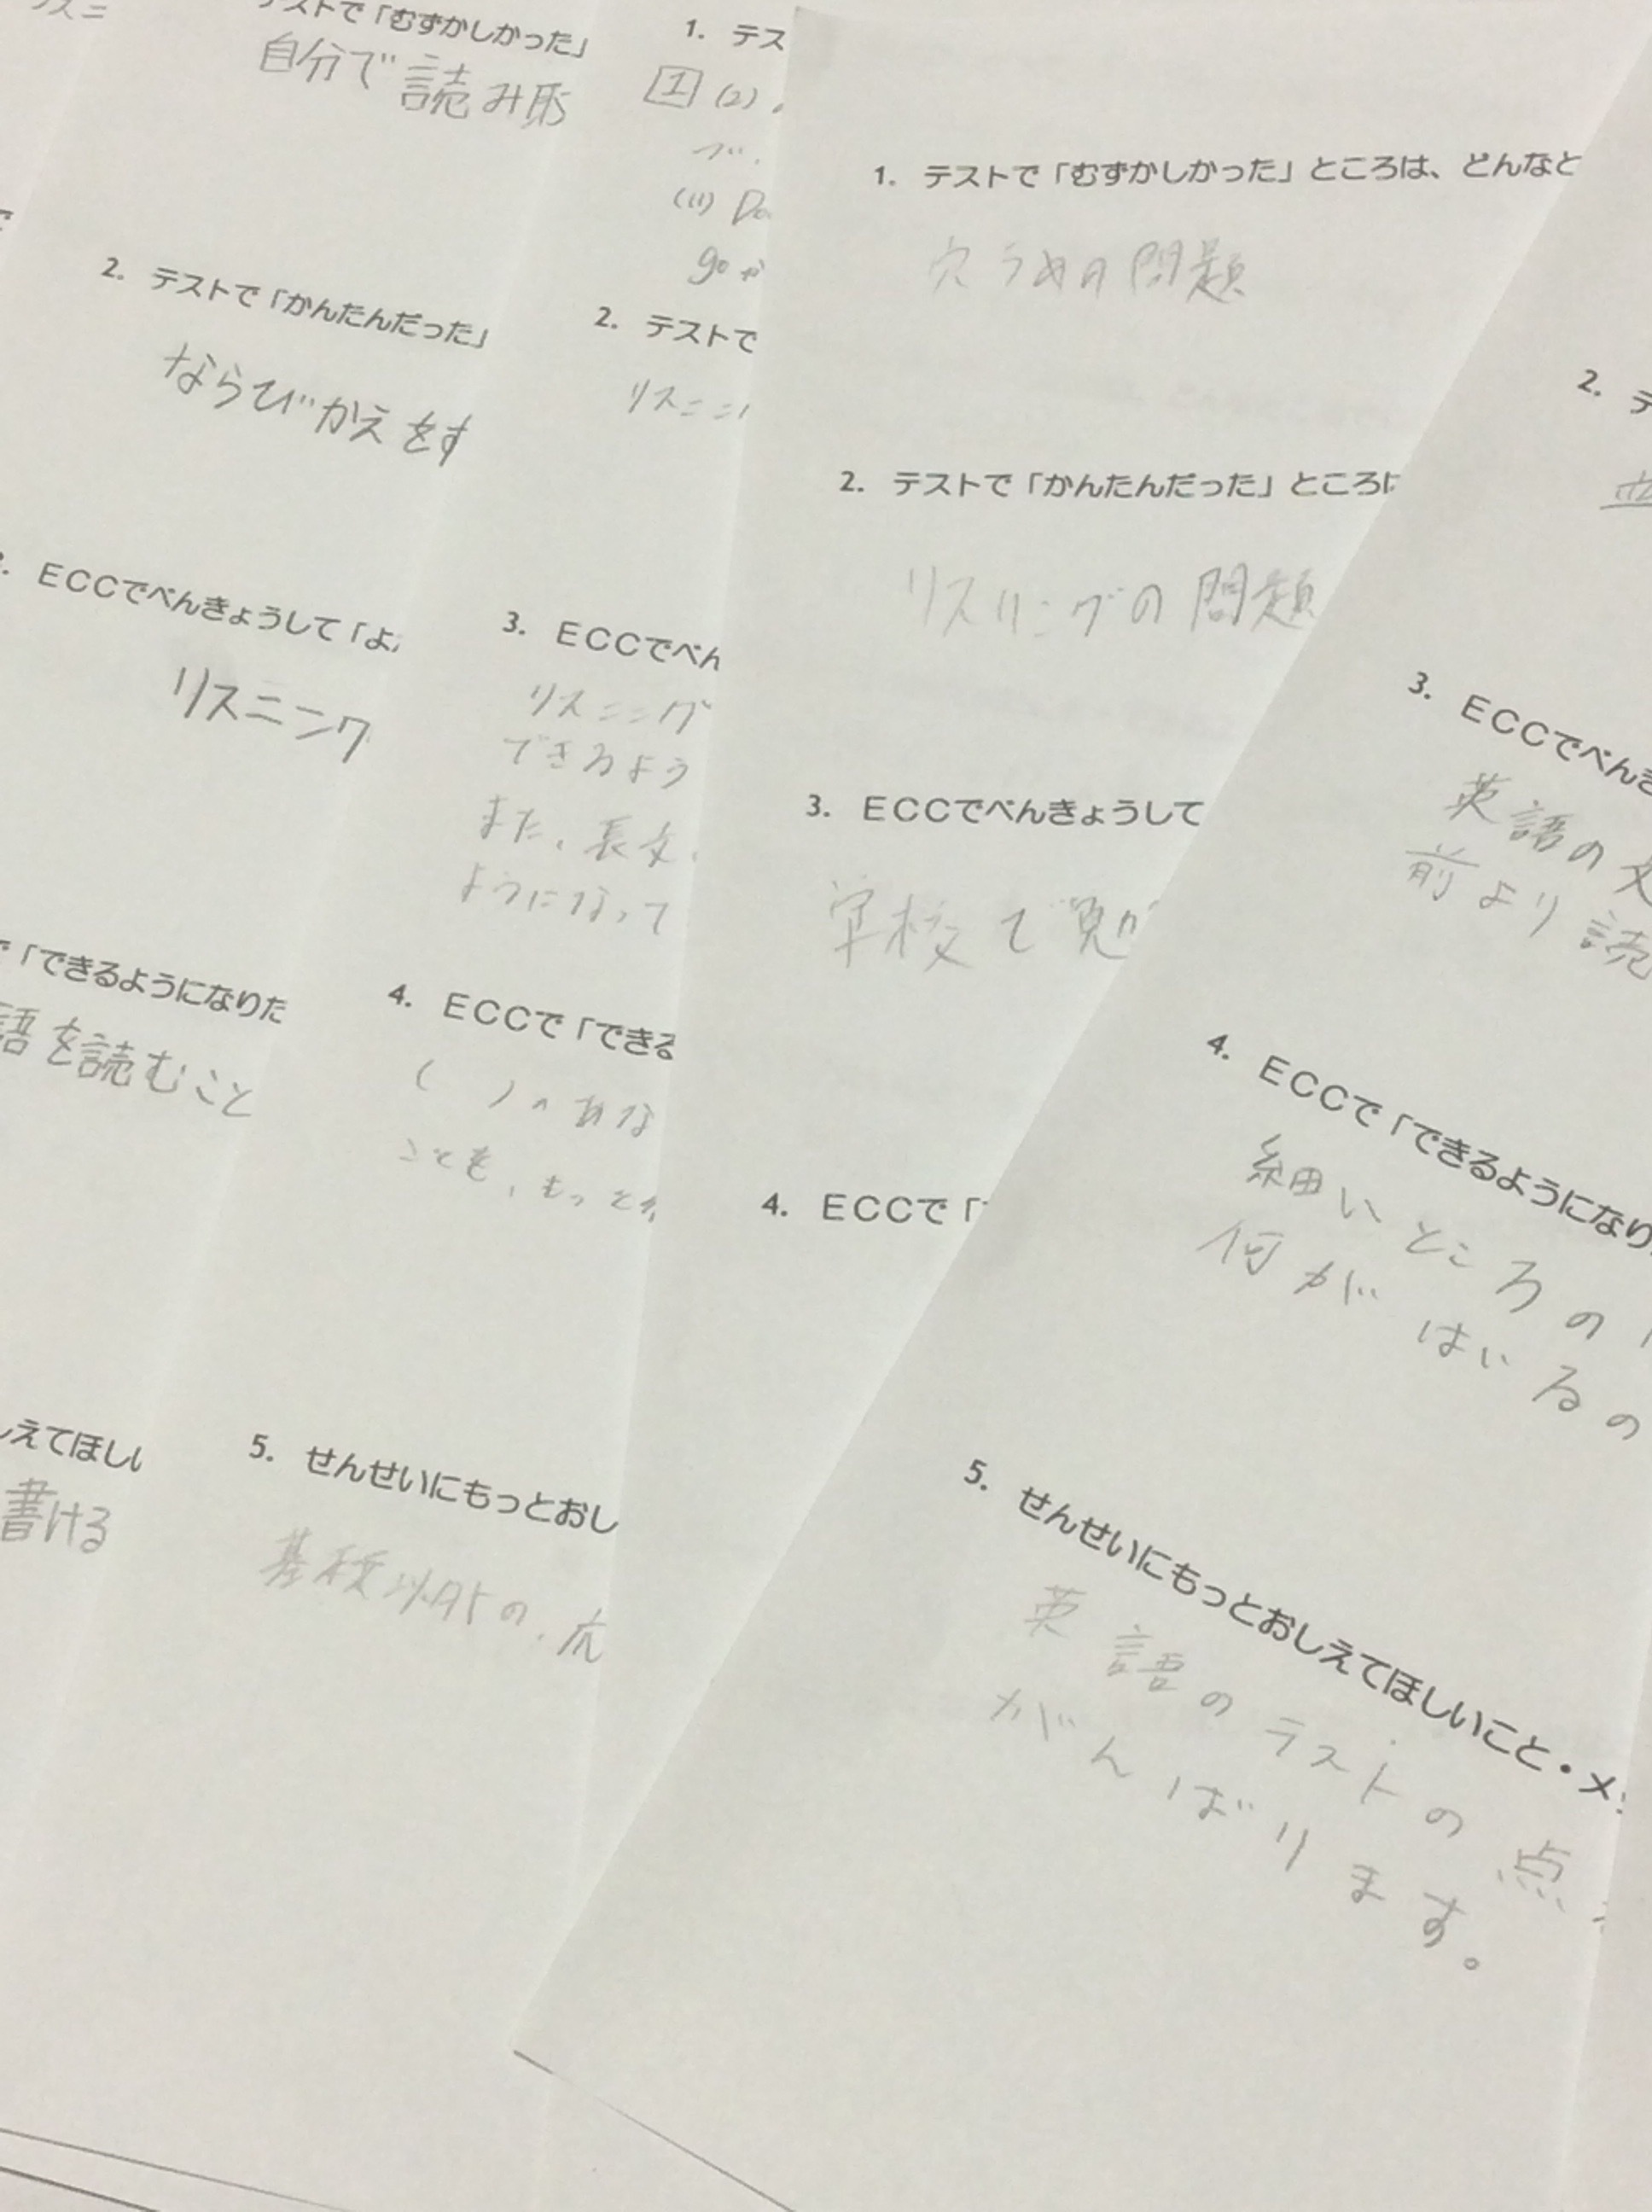 テストで「むずかしかった」
自分で読み
2. テストで「かんたんだった」
ならびかえをす
ECCでべんきょうして「よ
リスニング
「できるようになりた
語を読むこと
えてほしい
書ける
1. テス
1 (2)
(11) Do
go
2. テストで
リスニン
3. ECCでべん
リスニング
できるよう
また、長文
ようになって
4. ECCで「できる
( )
ことも、もっと
5. せんせいにもっとおし
基礎以外の、応
1. テストで「むずかしかった」ところは、どんなと
穴うめの問題
2. テストで「かんたんだった」ところは
リスニングの問題
3. ECCでべんきょうして
学校で勉
4. ECCで「
2. テ
3. ECCでべんき
英語の文
前より読
4. ECCで「できるようになり
細いところの
何がはいるの
5. せんせいにもっとおしえてほしいこと・メ
英語のテストの点
がんばります。